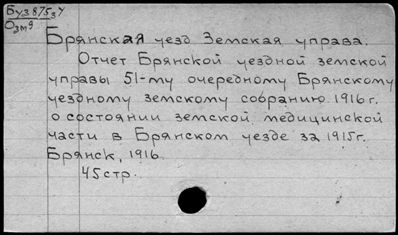 Буз875зу
Озм9
Брянская уезд Земская управа.
Отчет Брянской уездной земской
управы 51-му очередному Брянскому
уездному земскому собранию 1916 г.
о состоянии земской медицинской
части в Брянском уезде за 1915 г.
Брянск, 1916.
45 стр.